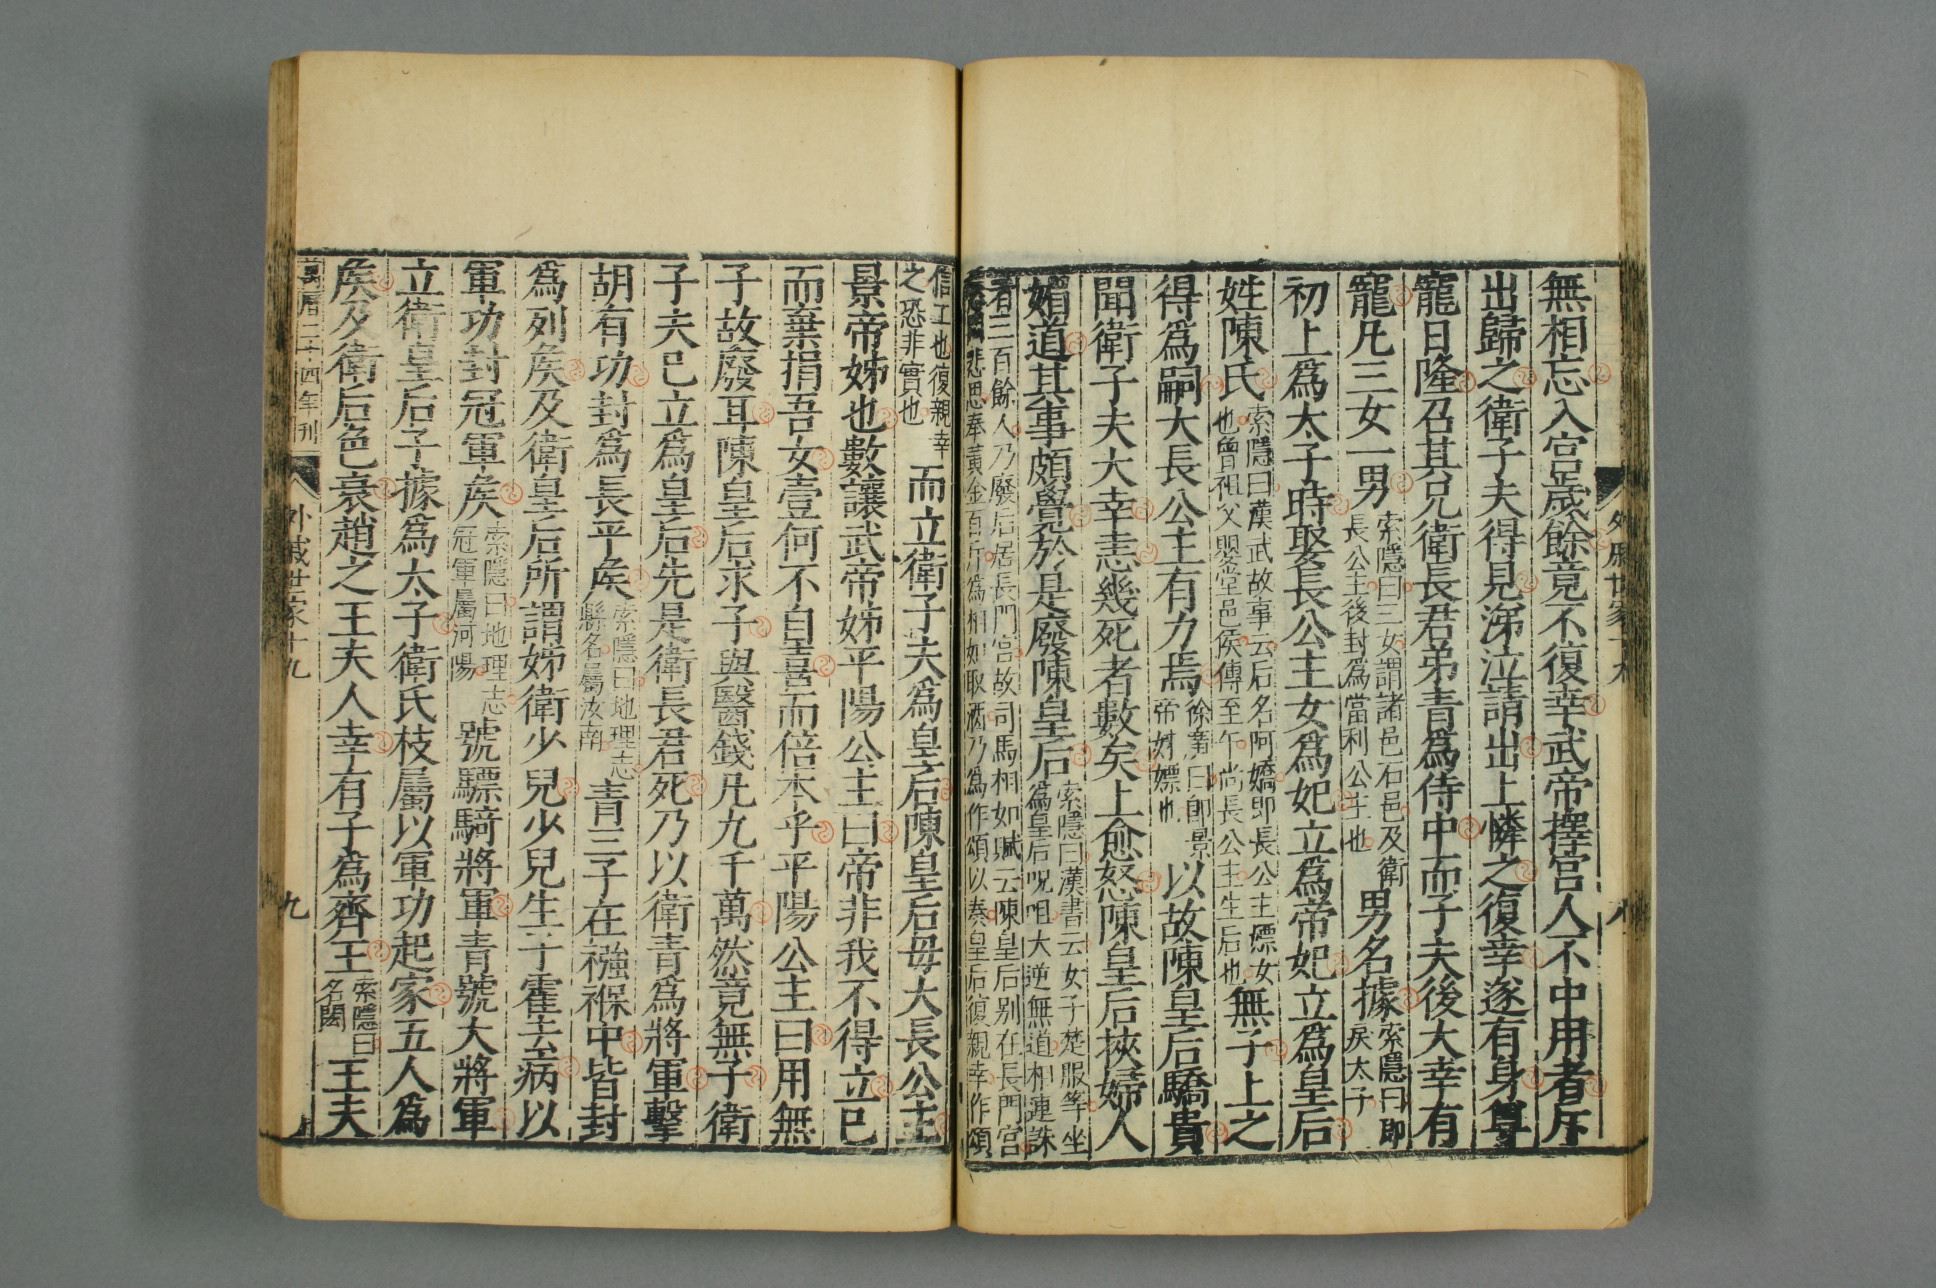 無相忘入宮歲餘竟不復幸武帝擇宮人不中用者斥
出歸之衛子夫得見涕泣請出上憐之復幸遂有身尊
寵日隆召其兄衛長君弟青爲侍中而子夫後大幸有
寵凡三女一男
索隱曰三女謂諸邑石邑及衛
長公主後封爲當利公主也
男名據
索隱曰即
戾太子
初上爲太子時娶長公主女爲妃立爲帝妃立爲皇后
姓陳氏
索隱曰漢武故事云后名阿嬌即長公主嫖女
也曾祖父嬰堂邑侯傳至午尚長公主生后也
無子上之
得爲嗣大長公主有力焉
徐廣曰即景
帝姊嫖也
以故陳皇后驕貴
聞衛子夫大幸恚幾死者數矣上愈怒陳皇后挾婦人
媚道其事頗覺於是廢陳皇后
索隱曰漢書云女子楚服等坐
爲皇后呪咀大逆無道相連誅
者三百餘人乃廢后居長門宮故司馬相如賦云陳皇后别在長門宮
悲思奉黃金百斤爲相如取酒乃爲作頌以奏皇后復親幸作頌
信工也復親幸
之恐非實也
而立衛子夫爲皇后陳皇后母大長公主
景帝姊也數讓武帝姊平陽公主曰帝非我不得立已
而棄捐吾女壹何不自喜而倍本乎平陽公主曰用無
子故廢耳陳皇后求子與醫錢凡九千萬然竟無子衛
子夫已立爲皇后先是衛長君死乃以衛青爲將軍擊
胡有功封爲長平矦
索隱曰地理志
縣名屬汝南
青三子在襁褓中皆封
爲列矦及衛皇后所謂姊衛少兒少兒生子霍去病以
軍功封冠軍矦
索隱曰地理志
冠軍屬河陽
號驃騎將軍青號大將軍
立衛皇后子據爲太子衛氏枝屬以軍功起家五人爲
矦及衛后色衰趙之王夫人幸有子爲齊王
索隱曰
名閎
王夫
萬曆二十四年刊
外戚世家十九
九